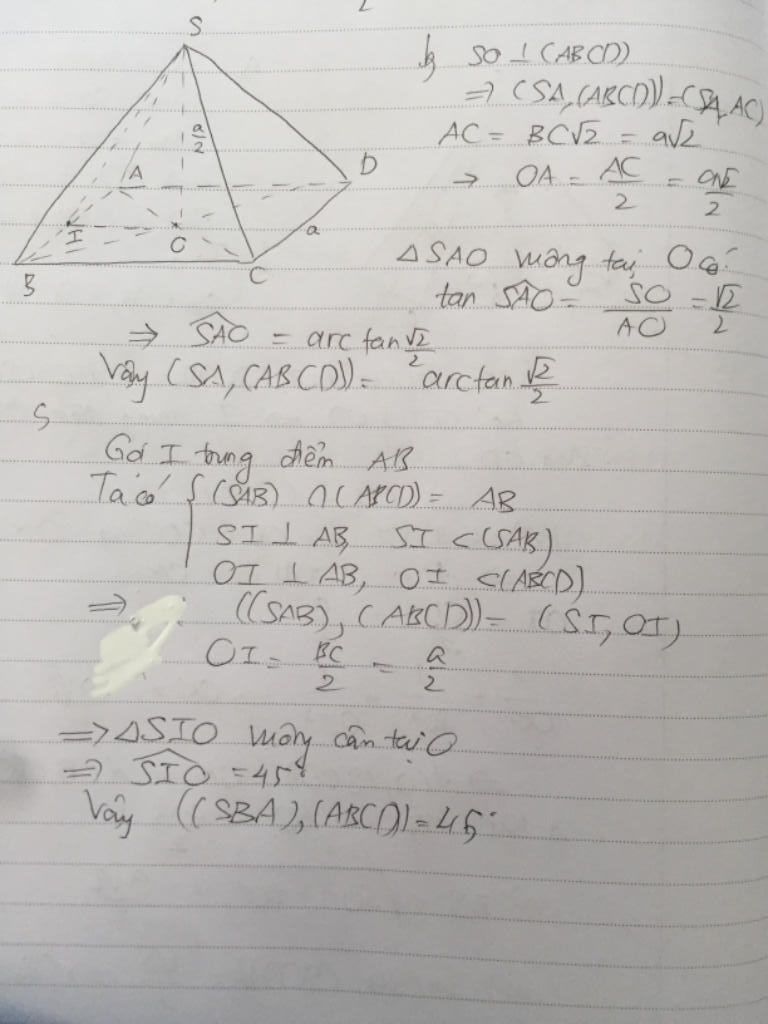 S
a/2
A
D
I
O
a
B
C
b, SO ⊥ (ABCD)
⇒ (SA, (ABCD)) = (SA, AC)
AC = BC√2 = a√2
→ OA = AC/2 = a√2/2
ΔSAO vuông tại O có:
tan SAO = SO/AO = √2/2
⇒ SAO = arc tan √2/2
Vậy (SA, (ABCD)) = arctan √2/2
Gọi I trung điểm AB
Ta có { (SAB) ∩ (ABCD) = AB
SI ⊥ AB, SI ⊂ (SAB)
OI ⊥ AB, OI ⊂ (ABCD)
⇒ ((SAB), (ABCD)) = (SI, OI)
OI = BC/2 = a/2
⇒ ΔSIO vuông cân tại O
⇒ SIO = 45°
Vậy ((SBA), (ABCD) = 45°